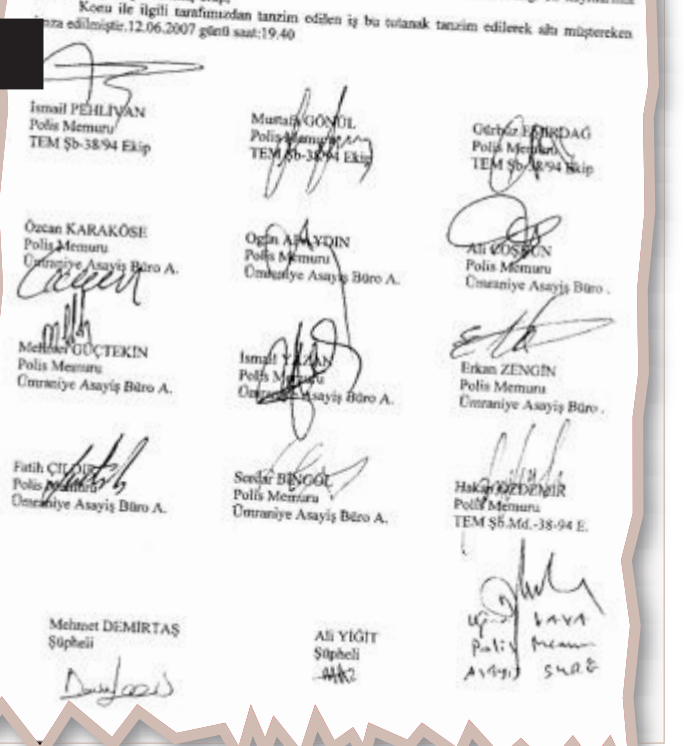 Konu ile ilgili tarafımızdan tanzim edilen iş bu tutanak tanzim edilerek altı müştereken
imza edilmiştir.12.06.2007 günü saat:19.40
İsmail PEHLİVAN
Polis Memuru
TEM Şb-38/94 Ekip
Mustafa GÖNÜL
Polis Memuru
TEM Şb-38/94 Ekip
Gürbüz
Polis Memuru
TEM Şb-38/94 Ekip
Özcan KARAKÖSE
Polis Memuru
Ümraniye Asayiş Büro A.
Ogün
Polis Memuru
Ümraniye Asayiş Büro A.
Ali COŞKUN
Polis Memuru
Ümraniye Asayiş Büro .
Mehmet GÜÇTEKİN
Polis Memuru
Ümraniye Asayiş Büro A.
İsmail
Polis Memuru
Ümraniye Asayiş Büro A.
Erkan ZENGİN
Polis Memuru
Ümraniye Asayiş Büro .
Fatih
Polis Memuru
Ümraniye Asayiş Büro A.
Serdar BİNGÖL
Polis Memuru
Ümraniye Asayiş Büro A.
Hakan ÖZDEMİR
Polis Memuru
TEM Şb.Md.-38-94 E.
Mehmet DEMİRTAŞ
Şüpheli
Ali YİĞİT
Şüpheli
Polis Memuru
Asayiş